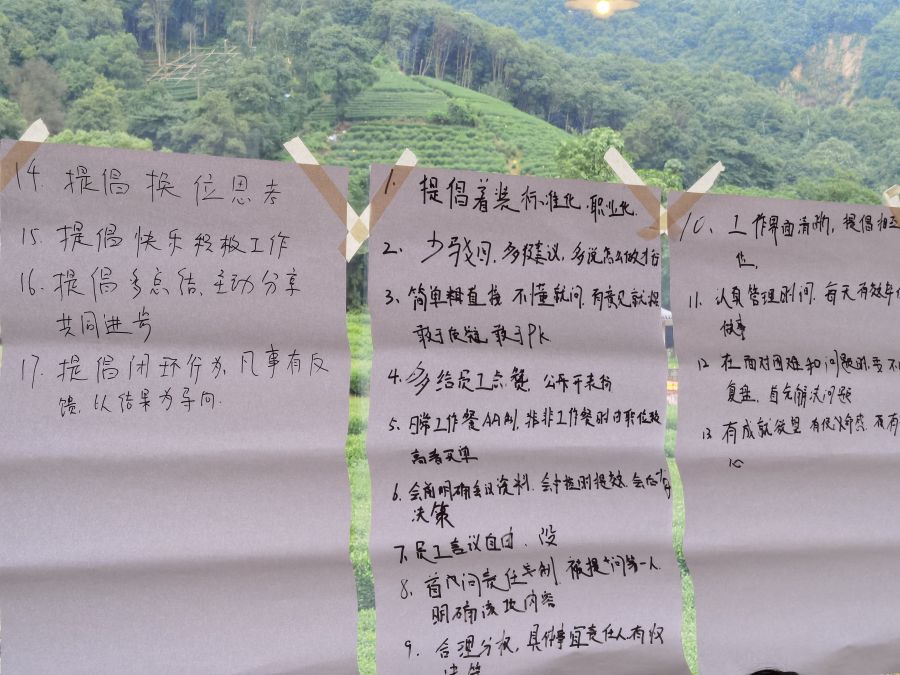 14. 提倡换位思考
15. 提倡快乐积极工作
16. 提倡多总结、主动分享
共同进步
17. 提倡闭环行为、凡事有反
馈,以结果为导向.
1. 提倡着装标准化.职业化.
2. 少残回,多提建议,多说怎么做才行
3、简单粗直接 不懂就问.有意见就提
敢于反馈 敢于PK
4. 多给员工点餐,公开表扬
5、日常工作餐AA制,若非工作餐则由职位较
高者买单
6、会前明确会议资料.会中控制提效.会后
决策
7、员工言议自由、没
8、首问责任制,被提问第一人.
明确该项内容
9、合理分权,具体事宜责任人有权
决策
10、工作界面清晰,提倡相互
位.
11、认真管理时间.每天有效率
做事
12 在面对困难和问题时要不
复盘,首先解决问题
13 有成就欲望 有使命感.
心